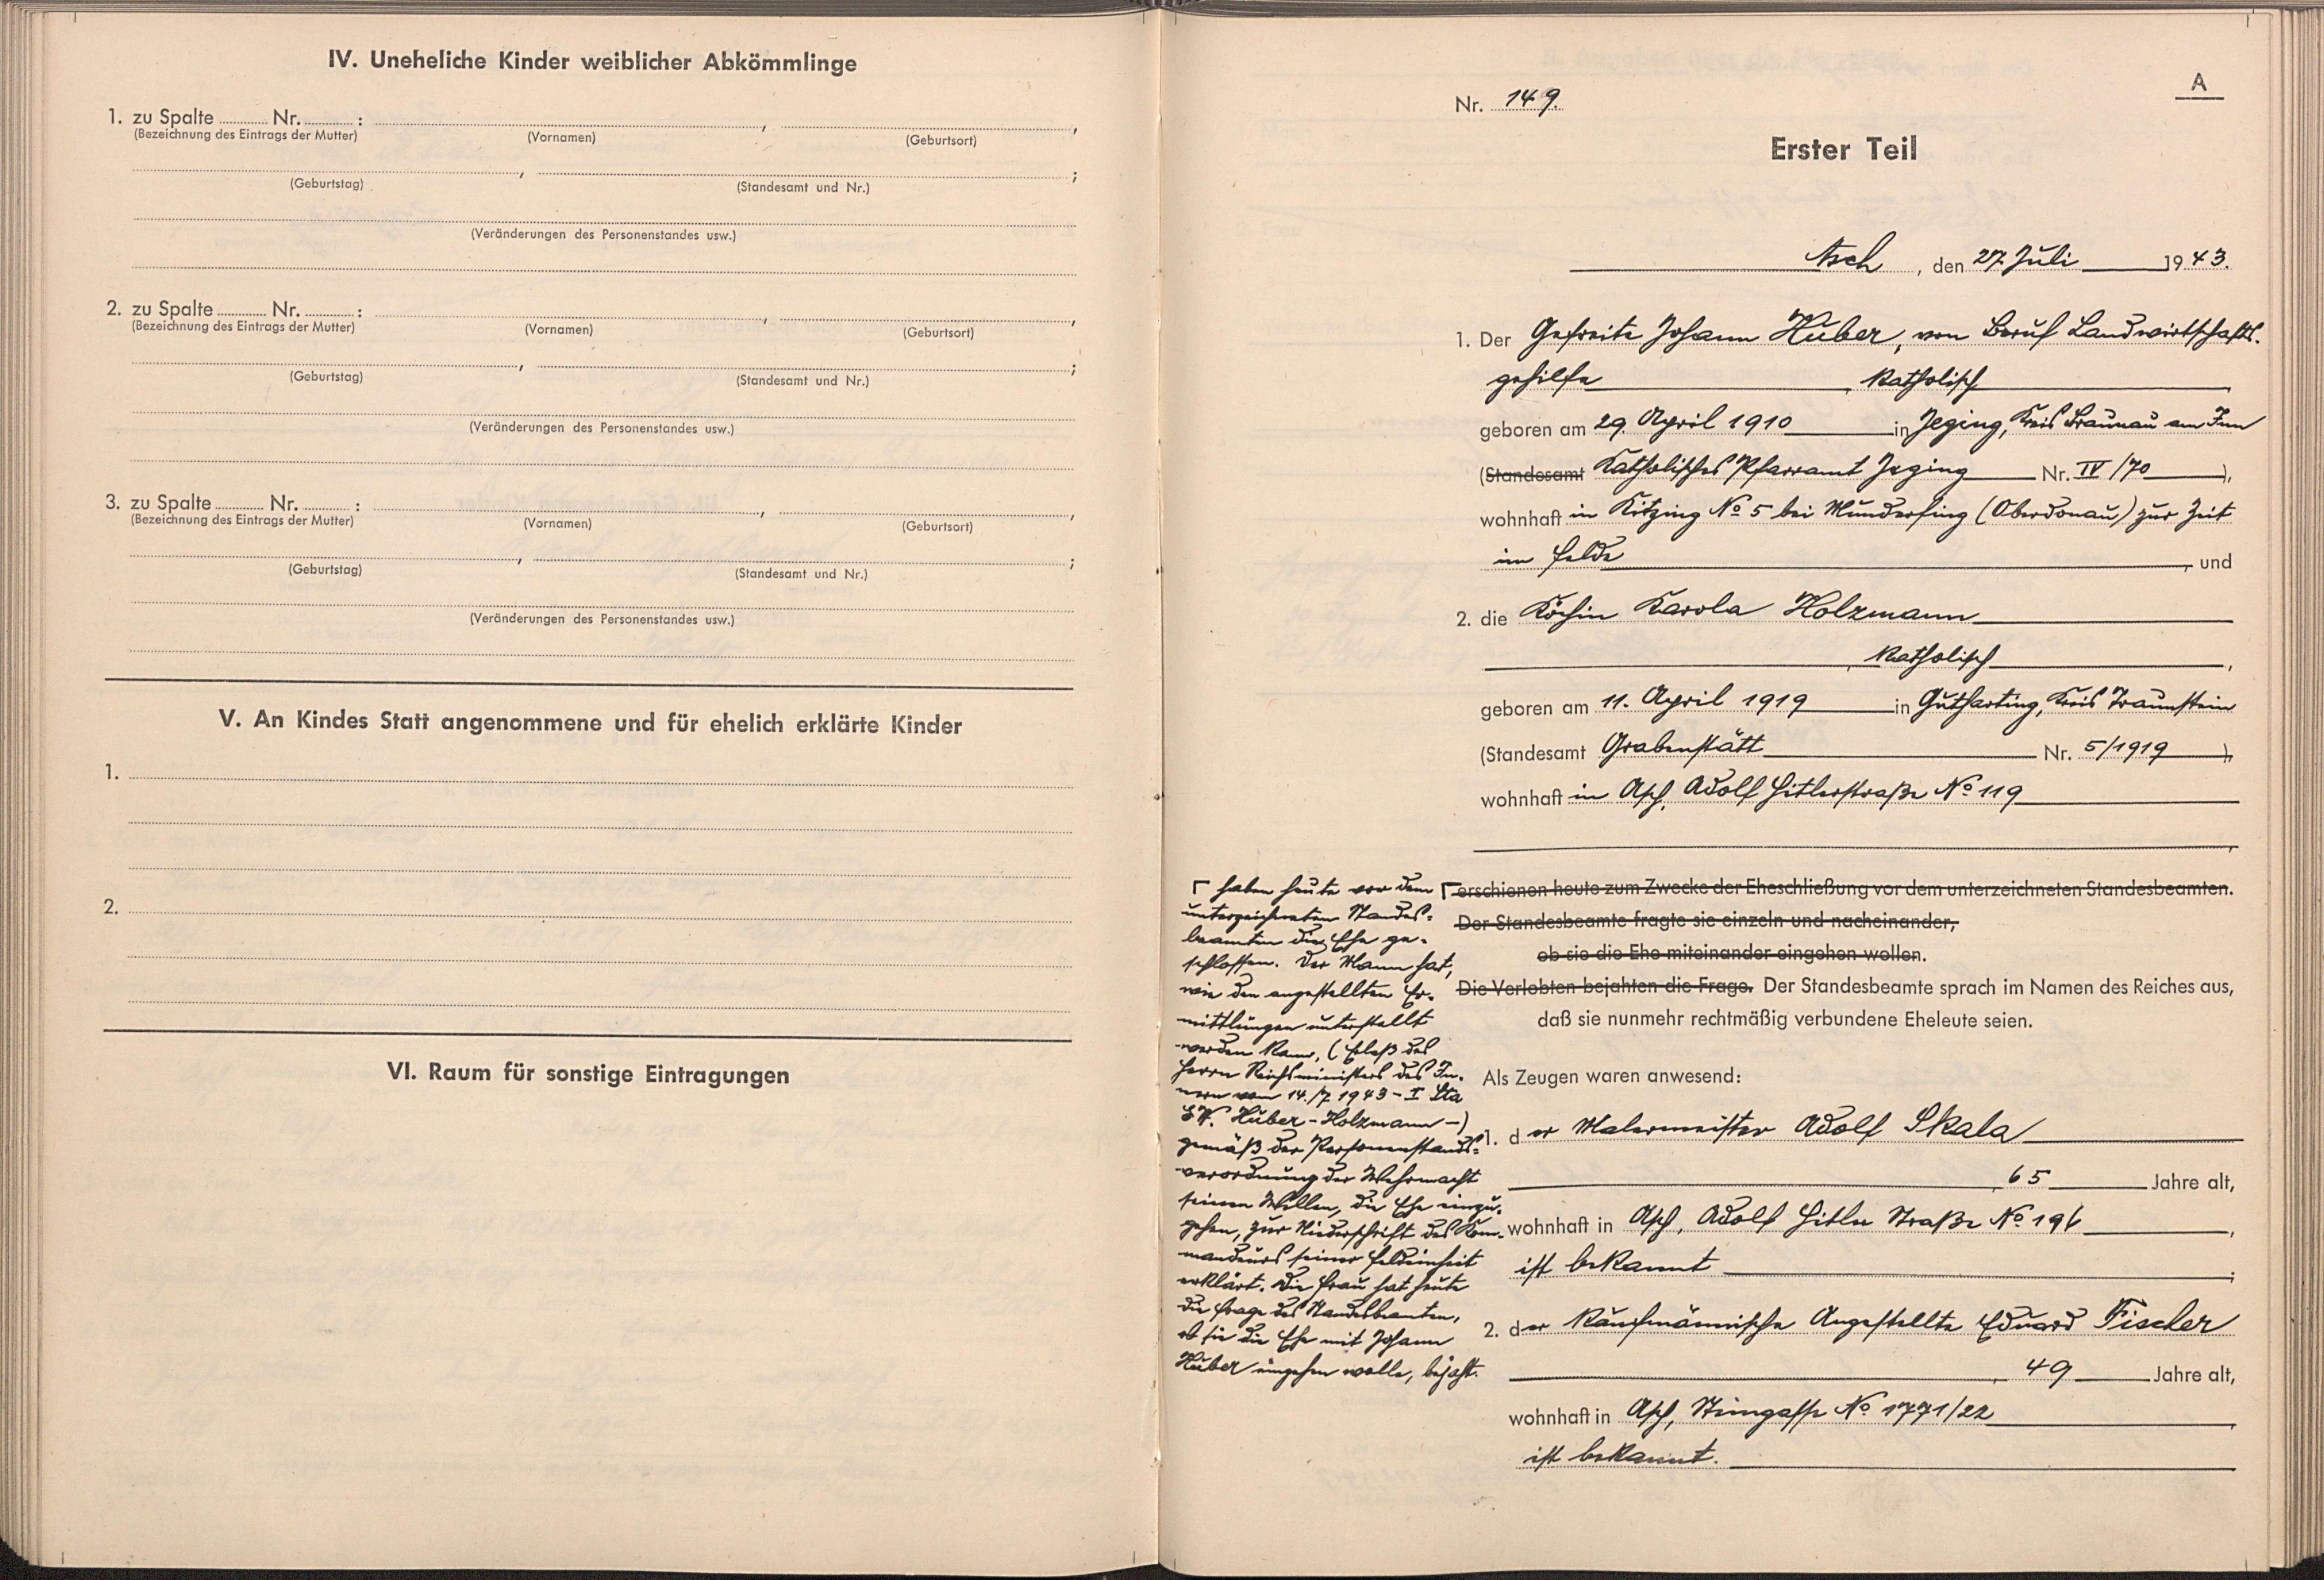 IV. Uneheliche Kinder weiblicher Abkömmlinge
1. zu Spalte Nr. : , ,
(Bezeichnung des Eintrags der Mutter) (Vornamen) (Geburtsort)
, ;
(Geburtstag) (Standesamt und Nr.)
(Veränderungen des Personenstandes usw.)
2. zu Spalte Nr. : , ,
(Bezeichnung des Eintrags der Mutter) (Vornamen) (Geburtsort)
, ;
(Geburtstag) (Standesamt und Nr.)
(Veränderungen des Personenstandes usw.)
3. zu Spalte Nr. : , ,
(Bezeichnung des Eintrags der Mutter) (Vornamen) (Geburtsort)
, ;
(Geburtstag) (Standesamt und Nr.)
(Veränderungen des Personenstandes usw.)
V. An Kindes Statt angenommene und für ehelich erklärte Kinder
1.
2.
VI. Raum für sonstige Eintragungen
A
Nr. 149.
Erster Teil
Asch, den 27. Juli 1943.
1. Der Gefreite Johann Huber, von Beruf Landwirtschafts-
gehilfe, katholisch
geboren am 29. April 1910 in Jeging, Kreis Braunau am Inn
(Standesamt Katholisches Pfarramt Jeging Nr. IV/70),
wohnhaft in Kitzing No 5 bei Munderfing (Oberdonau) zur Zeit
im Felde, und
2. die Köchin Karola Holzmann
, katholisch,
geboren am 11. April 1919 in Gutharting, Kreis Traunstein
(Standesamt Grabenstätt Nr. 5/1919),
wohnhaft in Asch, Adolf Hitlerstraße No 119
,
haben heute vor dem
unterzeichneten Standes-
beamten die Ehe ge-
schlossen. Der Mann hat,
wie den angestellten Er-
mittlungen unterstellt
werden kann, (Erlaß des
Herrn Reichsministers des In-
nern vom 14./7. 1943 - I Sta
Huber-Holzmann-)
gemäß der Personenstands-
verordnung der Wehrmacht
seinen Willen, die Ehe einzu-
gehen, zur Niederschrift des Kom-
mandeurs seiner Feldeinheit
erklärt. Die Frau hat heute
die Frage des Standesbeamten,
ob sie die Ehe mit Johann
Huber eingehen wolle, bejaht.
erschienen heute zum Zwecke der Eheschließung vor dem unterzeichneten Standesbeamten.
Der Standesbeamte fragte sie einzeln und nacheinander,
ob sie die Ehe miteinander eingehen wollen.
Die Verlobten bejahten die Frage. Der Standesbeamte sprach im Namen des Reiches aus,
daß sie nunmehr rechtmäßig verbundene Eheleute seien.
Als Zeugen waren anwesend:
1. der Malermeister Adolf Skala
, 65 Jahre alt,
wohnhaft in Asch, Adolf Hitler Straße No ,
ist bekannt ;
2. der kaufmännische Angestellte Eduard Fischer
, 49 Jahre alt,
wohnhaft in Asch, Steingasse No 1771/22,
ist bekannt.